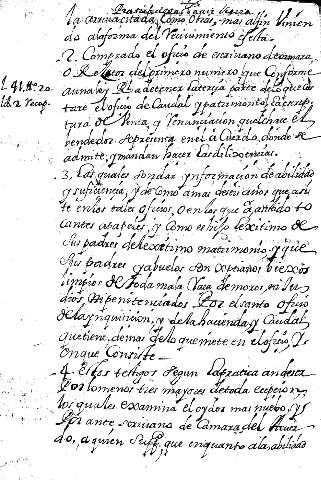 la arriva citada, como otras, mas al fin vinien
do a la forma del
2. Comprado el oficio de escrivano de camara,
o Relator del primero numero que conforme
aunaley Real a detener la terçia parte de lo que cos
tare el oficio de Caudal y patrimonio, la escrip
tura de Venta, y Renunciacion que le haçe el
vendedor se presenta en el acuerdo, donde se
admite, y mandan hacer las diligencias.
l. 41. tt. 20.
lib. 2 recop.
3. Las quales son dar ynformacion de abilidad
y suficiencia, y de como a mas de seis años que asis
te en los tales oficios, o en las que
cantes a , y como es hijo lexitimo de
sus padres de lexitimo matrimonio, y que
sus padres y abuelos son xpianos viexos
limpios de toda mala raça de moros, ni Ju
dios, ni penitenciados Por el santo oficio
de la ynquisicion, y de la hacienda, y Caudal
que tiene, demas de lo que mete en el oficio, y
en que Consiste.
4. Estos testigos segun la pratica an de ser
Por lo menos tres mayores de toda ecepcion,
los quales examina el oydor mas nuebo,
Por ante escrivano de Camara del Acuer
do, a quien que en quanto a la abilidad